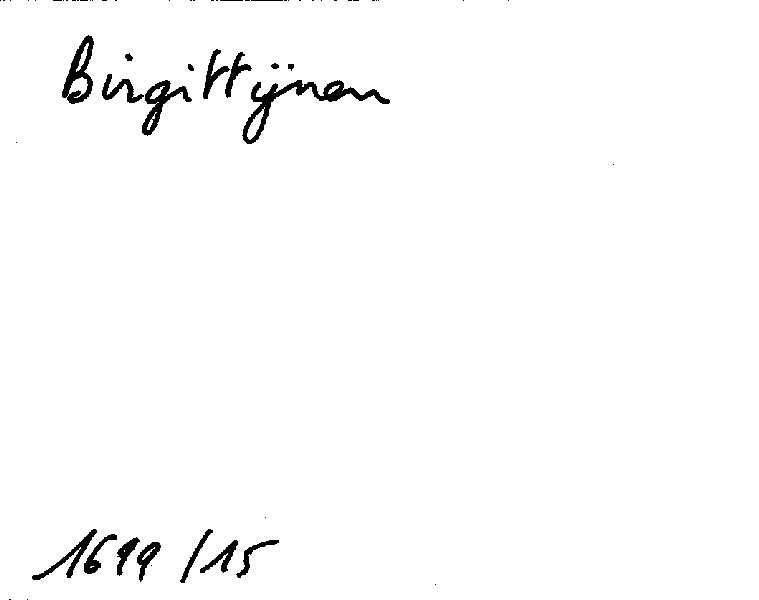 Birgittijnen
1699/15